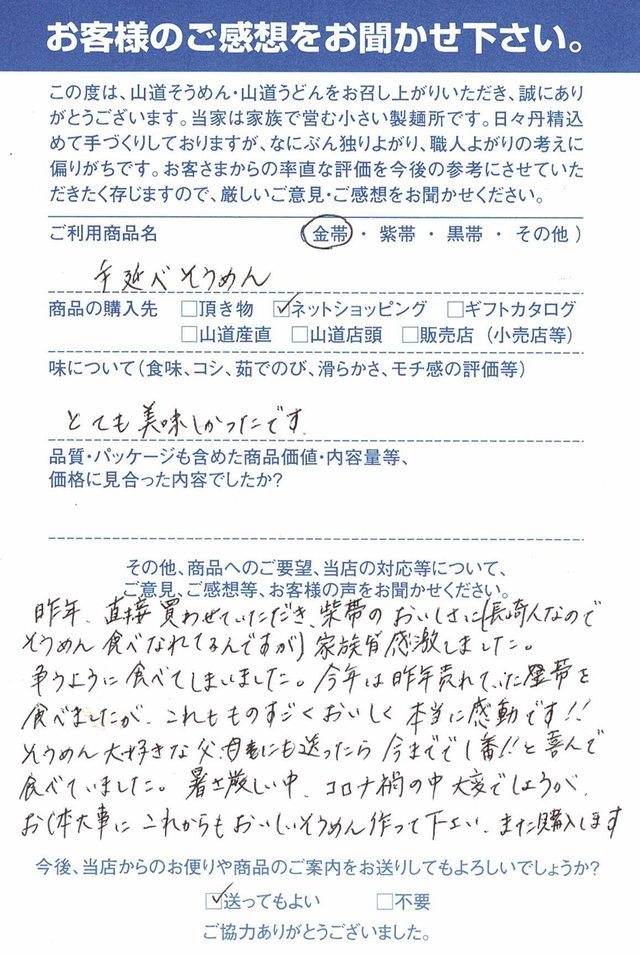 お客様のご感想をお聞かせ下さい。
この度は、山道そうめん・山道うどんをお召し上がりいただき、誠にあり
がとうございます。当家は家族で営む小さい製麺所です。日々丹精込
めて手づくりしておりますが、なにぶん独りよがり、職人よがりの考えに
偏りがちです。お客さまからの率直な評価を今後の参考にさせていた
だきたく存じますので、厳しいご意見・ご感想をお聞かせください。
ご利用商品名 （金帯・紫帯・黒帯・その他）
手延べそうめん
商品の購入先 □頂き物 ☑ネットショッピング □ギフトカタログ
□山道産直 □山道店頭 □販売店（小売店等）
味について（食味、コシ、茹でのび、滑らかさ、モチ感の評価等）
とても美味しかったです
品質・パッケージも含めた商品価値・内容量等、
価格に見合った内容でしたか?
その他、商品へのご要望、当店の対応等について、
ご意見、ご感想等、お客様の声をお聞かせください。
昨年、直接買わせていただき、紫帯のおいしさに(長崎人なので
そうめん食べなれてるんですが)家族皆感激しました。
争うように食べてしまいました。今年は昨年売れていた黒帯を
食べましたが、これもものすごくおいしく本当に感動です!!
そうめん大好きな父、母にも送ったら今までで1番!!と喜んで
食べていました。暑さ厳しい中、コロナ禍の中大変でしょうが、
お体大事にこれからもおいしいそうめん作って下さい。また購入します
今後、当店からのお便りや商品のご案内をお送りしてもよろしいでしょうか?
☑送ってもよい □不要
ご協力ありがとうございました。